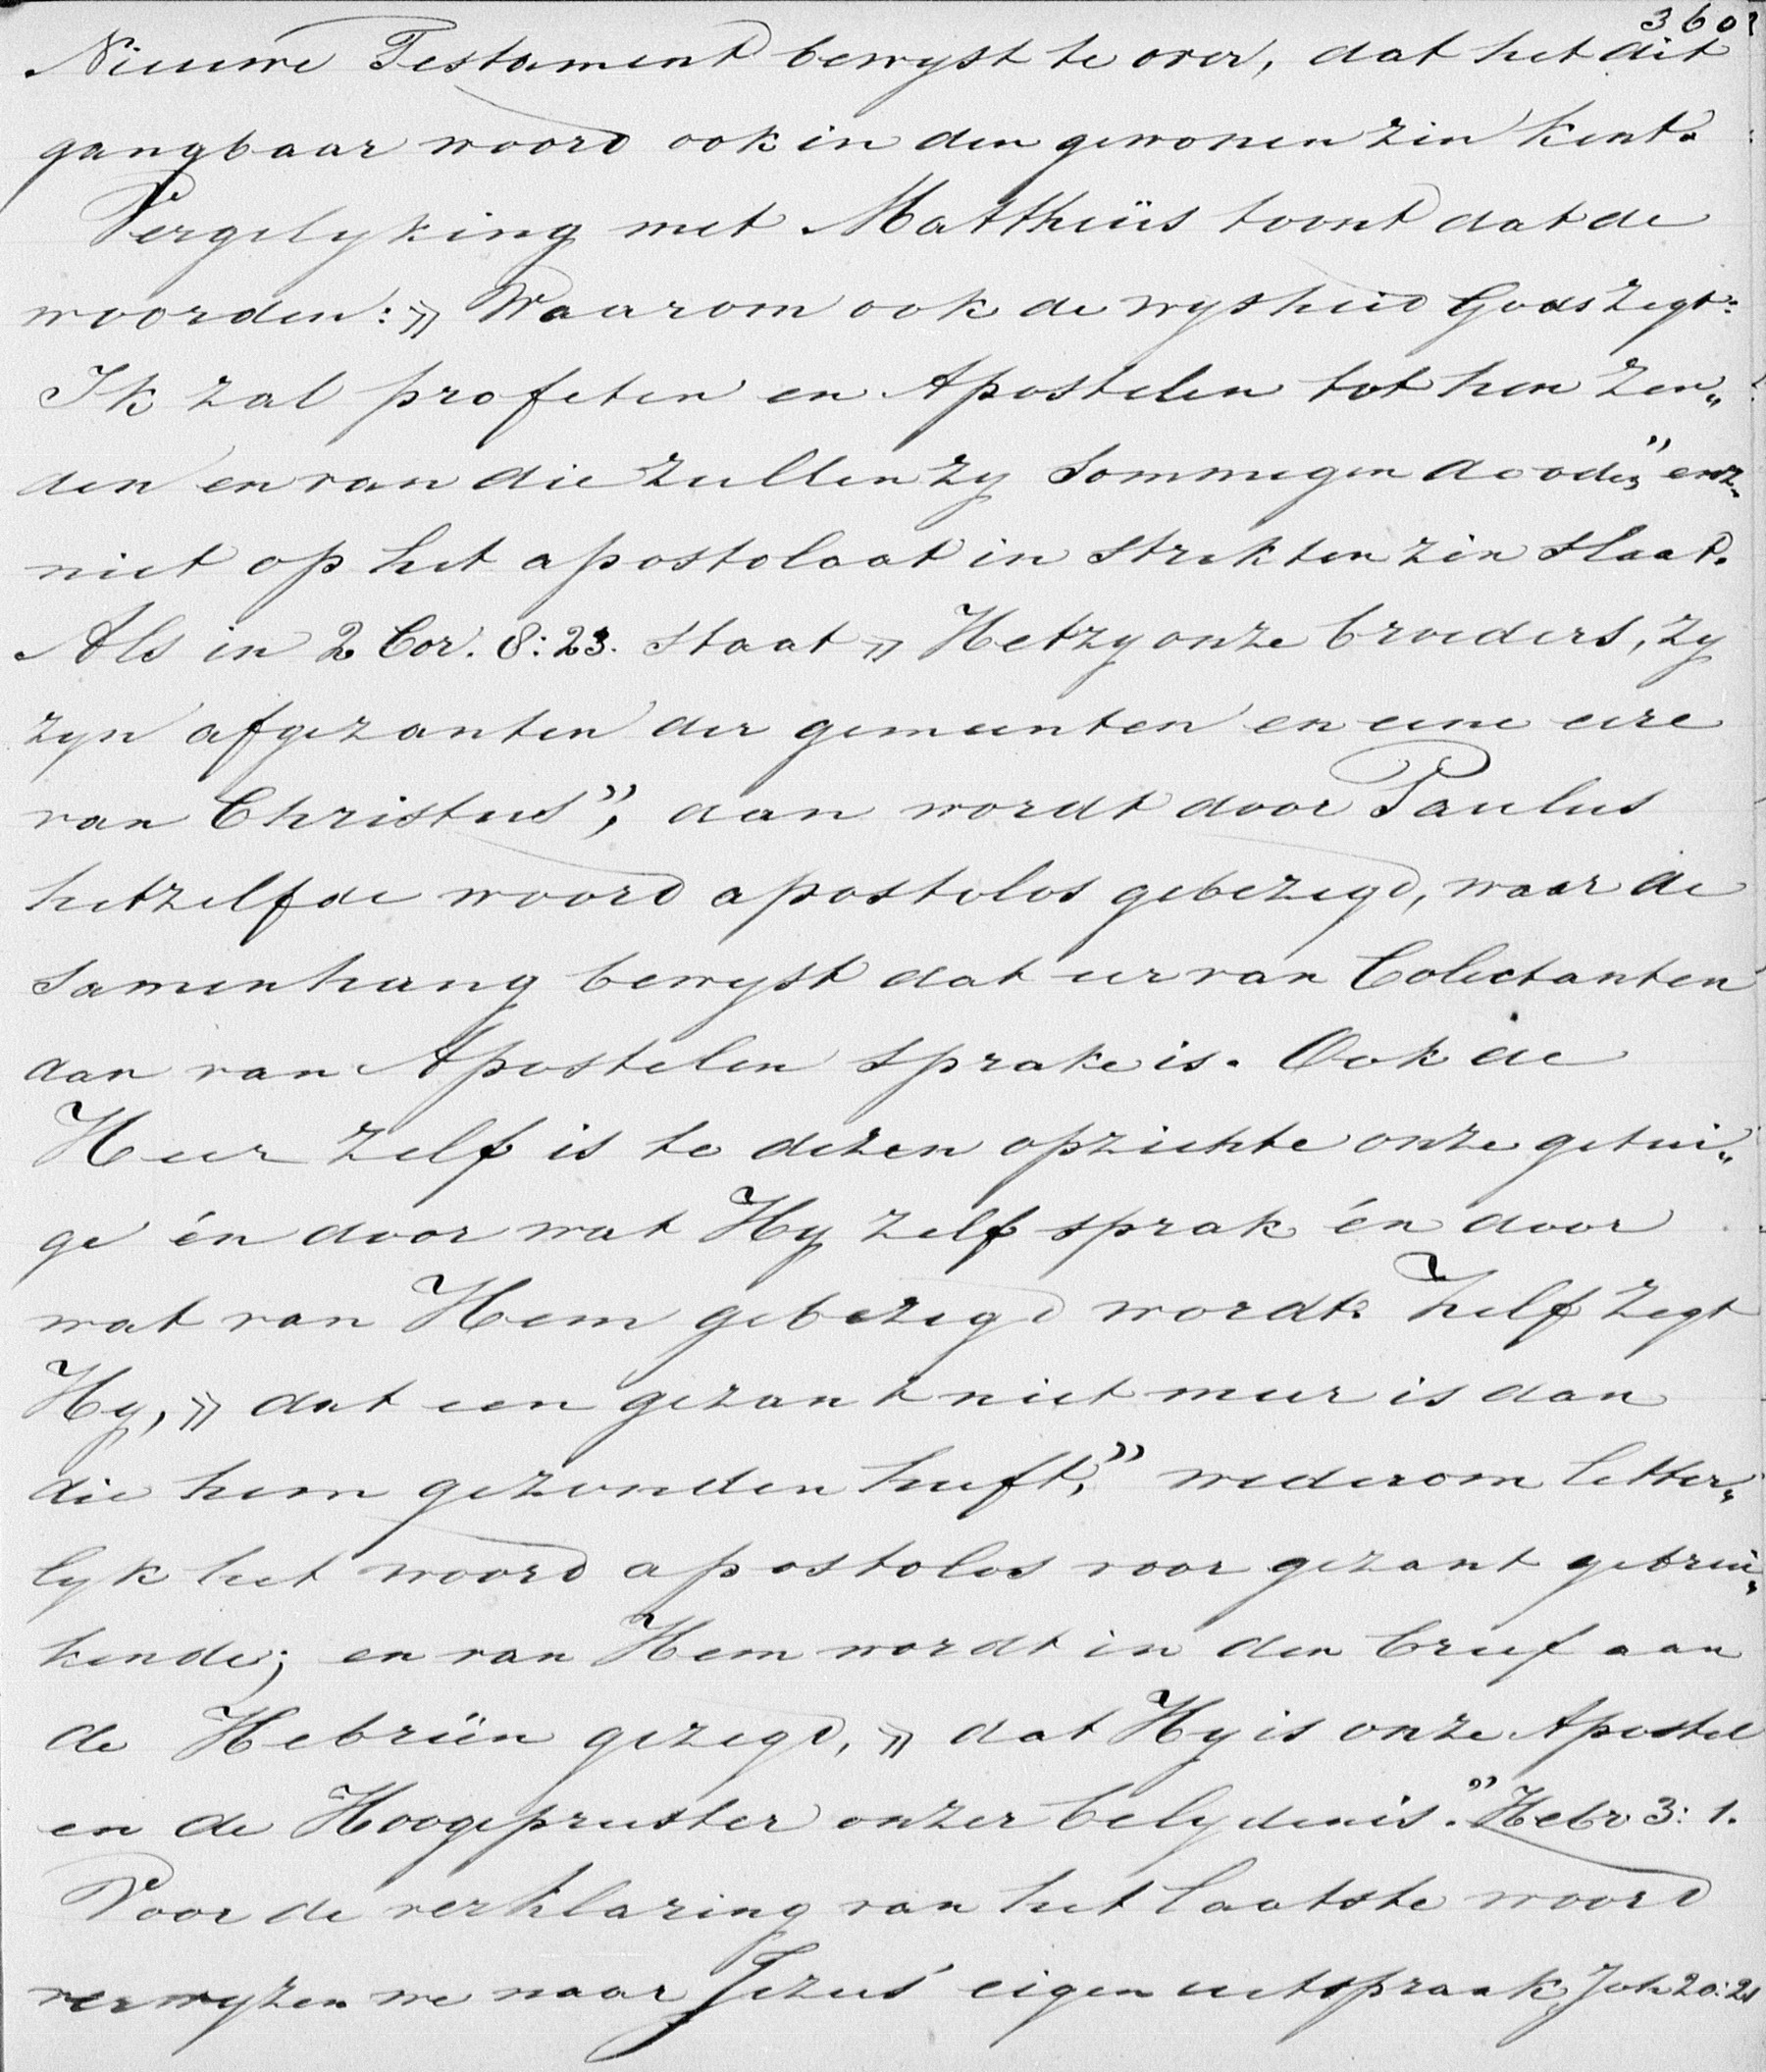 360
Nieuwe Testament bewyst te over, dat het dit
gangbaar woord ook in den gewonen zin kent.
Vergelyking met Mattheüs toont dat de
woorden: » Waarom ook de wysheid Gods zegt:
Ik zal profeten en Apostelen tot hen zen„
den en van die zullen zy sommigen dooden" enz.
niet op het apostolaat in strikten zin slaat.
Als in 2 Cor. 8:23. staat » Hetzy onze broeders, zy
zyn afgezanten der gemeenten en eene eere
van Christus", dan wordt door Paulus
hetzelfde woord apostolos gebezigd, waar de
samenhang bewyst dat er van Colectanten
dan van Apostelen sprake is. Ook de
Heer zelf is te dezen opzichte onze getui„
ge én door wat Hy zelf sprak én door
wat van Hem gebezigd wordt. Zelf zegt
Hy, » dat een gezant niet meer is dan
die hem gezonden heeft," wederom letter„
lyk het woord apostolos voor gezant gebrui„
kende; en van Hem wordt in den brief aan
de Hebreën gezegd, » dat Hy is onze Apostel
en de Hoogepriester onzer belydenis." Hebr 3: 1.
Voor de verklaring van het laatste woord
verwyzen we naar Jezus' eigen uitspraak Joh 20:21